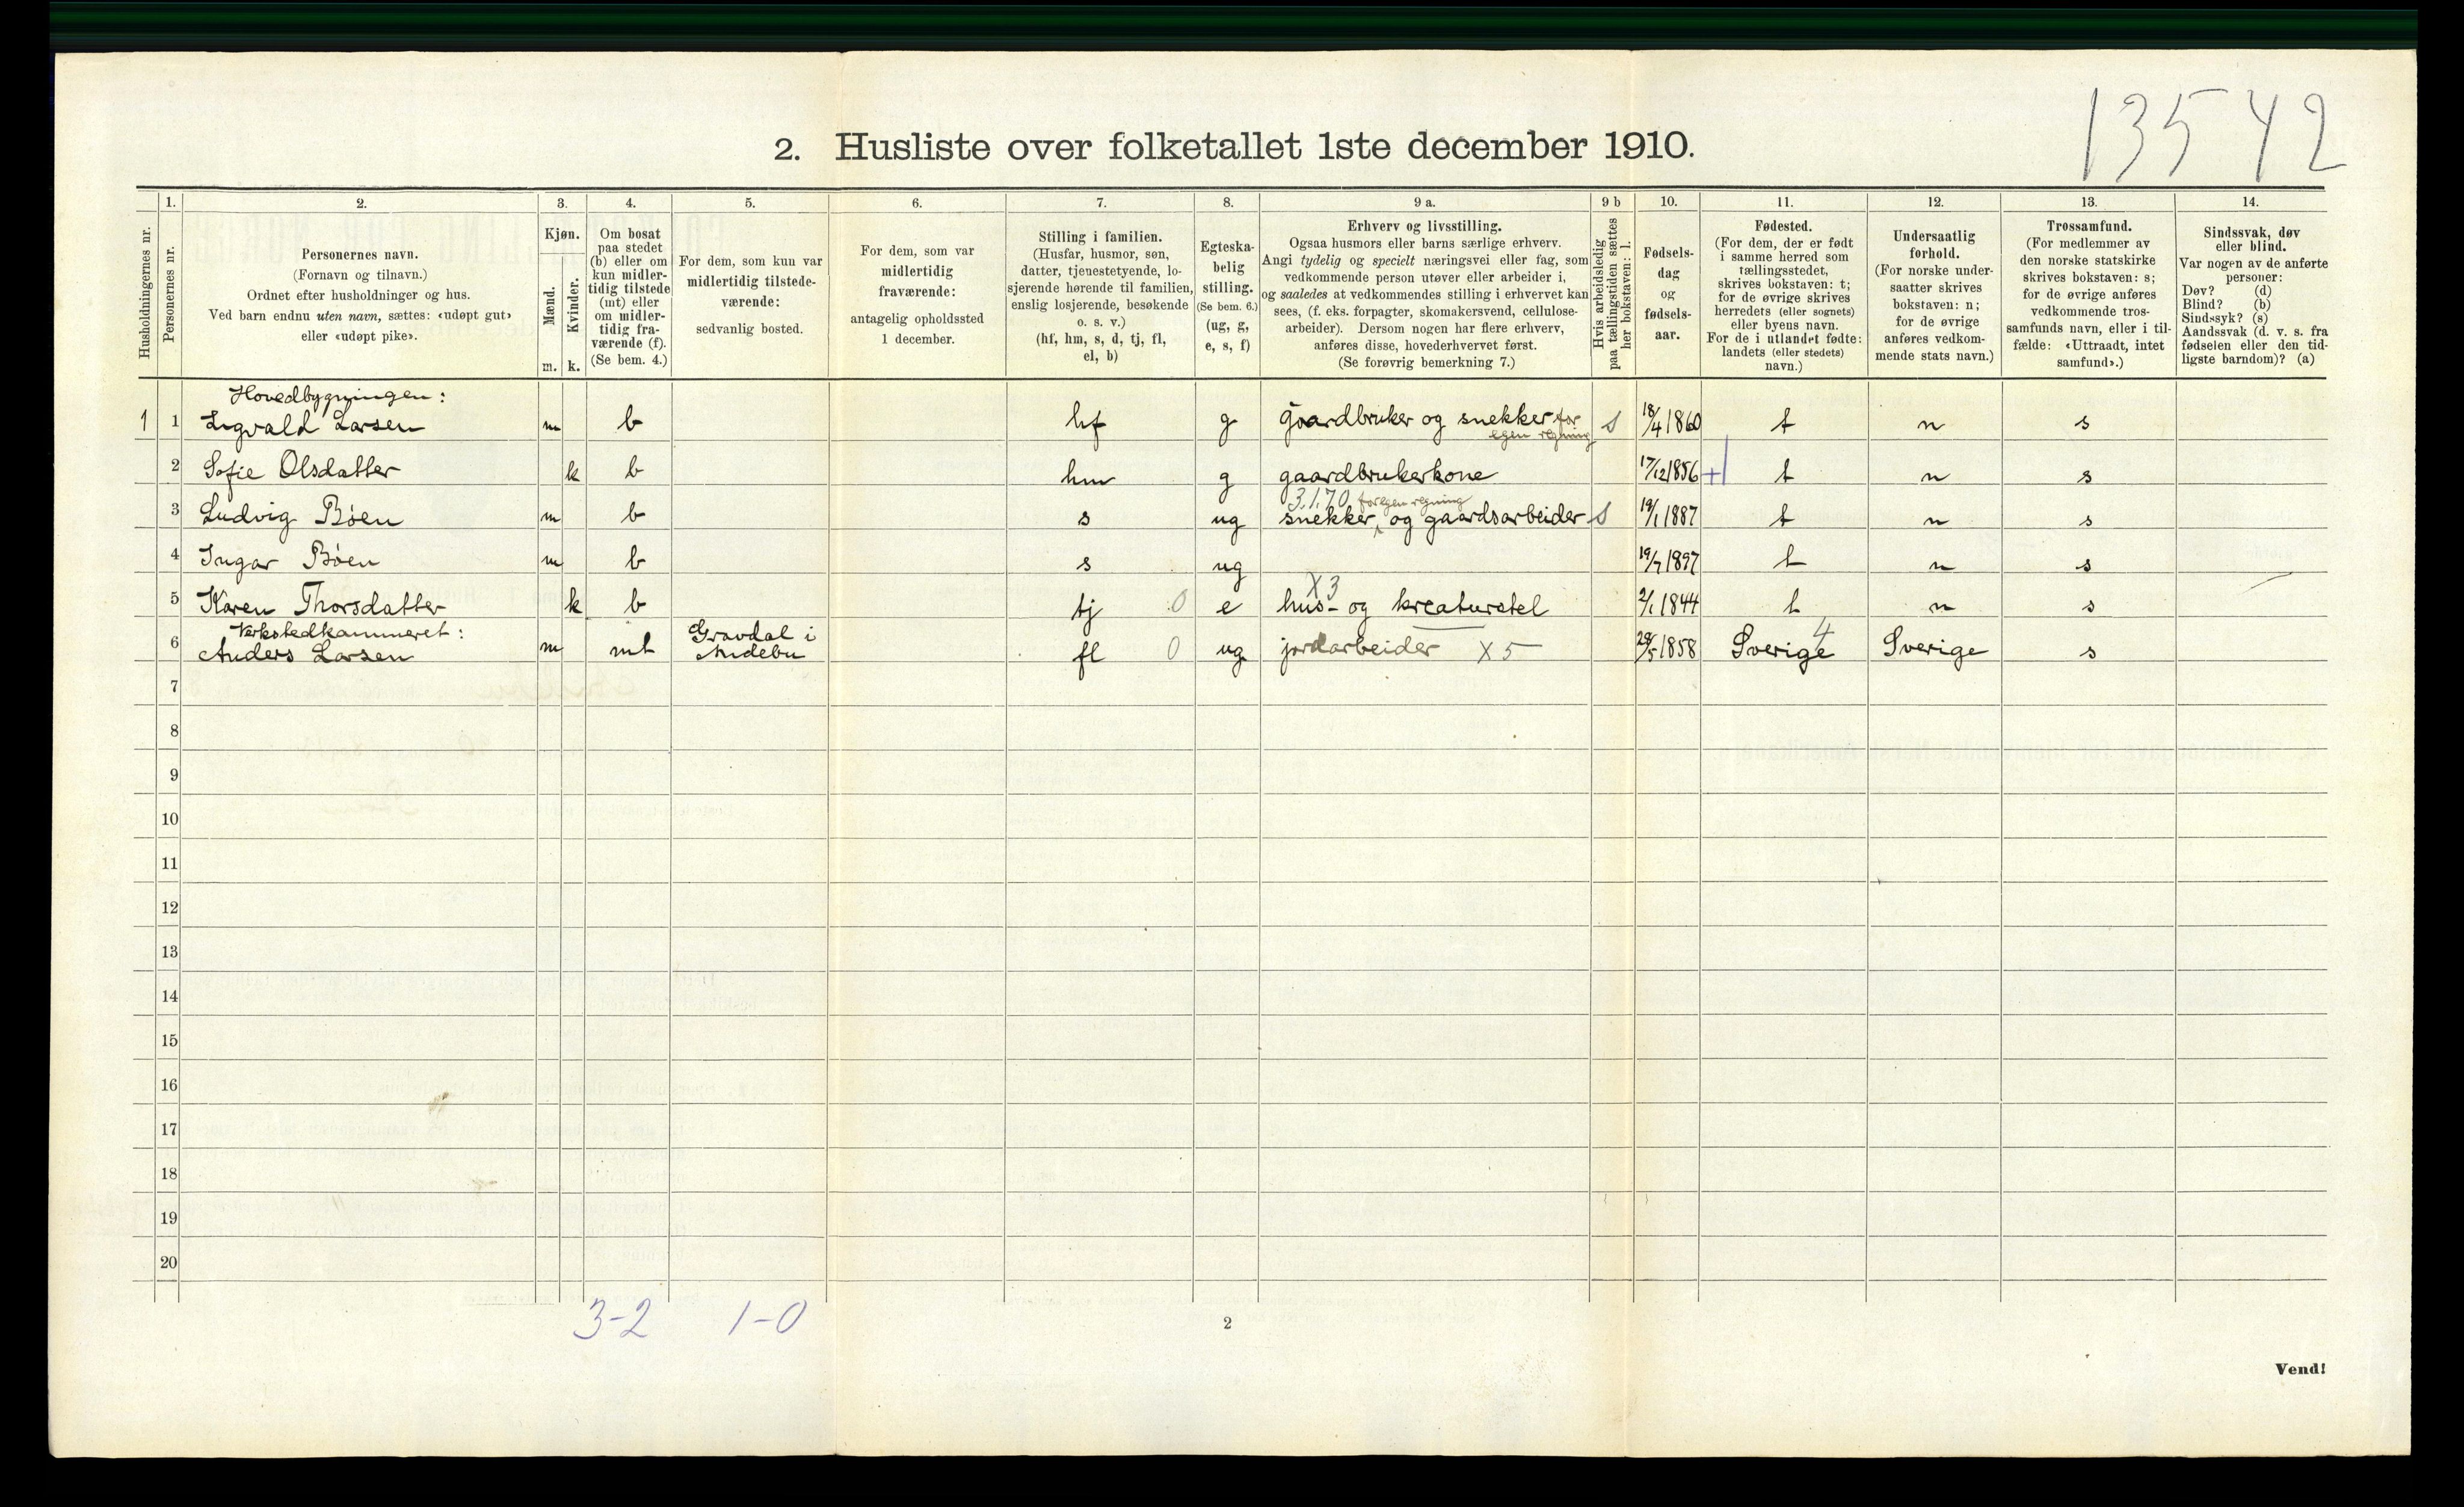 13542
2. Husliste over folketallet 1ste december 1910.
Husholdningernes nr.
1.
Personernes nr.
2.
Personernes navn.
(Fornavn og tilnavn.)
Ordnet efter husholdninger og hus.
Ved barn endnu uten navn, sættes: «udøpt gut»
eller «udøpt pike».
3.
Kjøn.
Mænd.
Kvinder.
m. k.
4.
Om bosat
paa stedet
(b) eller om
kun midler-
tidig tilstede
(mt) eller
om midler-
tidig fra-
værende (f).
(Se bem. 4.)
5.
For dem, som kun var
midlertidig tilstede-
værende:
sedvanlig bosted.
6.
For dem, som var
midlertidig
fraværende:
antagelig opholdssted
1 december.
7.
Stilling i familien.
(Husfar, husmor, søn,
datter, tjenestetyende, lo-
sjerende hørende til familien,
enslig losjerende, besøkende
o. s. v.)
(hf, hm, s, d, tj, fl,
el, b)
8.
Egteska-
belig
stilling.
(Se bem. 6.)
(ug, g,
e, s, f)
9 a.
Erhverv og livsstilling.
Ogsaa husmors eller barns særlige erhverv.
Angi tydelig og specielt næringsvei eller fag, som
vedkommende person utøver eller arbeider i,
og saaledes at vedkommendes stilling i erhvervet kan
sees, (f. eks. forpagter, skomakersvend, cellulose-
arbeider). Dersom nogen har flere erhverv,
anføres disse, hovederhvervet først.
(Se forøvrig bemerkning 7.)
9 b
Hvis arbeidsledig
paa tællingstiden sættes
her bokstaven: l.
10.
Fødsels-
dag
og
fødsels-
aar.
11.
Fødested.
(For dem, der er født
i samme herred som
tællingsstedet,
skrives bokstaven: t;
for de øvrige skrives
herredets (eller sognets)
eller byens navn.
For de i utlandet fødte:
landets (eller stedets)
navn.)
12.
Undersaatlig
forhold.
(For norske under-
saatter skrives
bokstaven: n;
for de øvrige
anføres vedkom-
mende stats navn.)
13.
Trossamfund.
(For medlemmer av
den norske statskirke
skrives bokstaven: s;
for de øvrige anføres
vedkommende tros-
samfunds navn, eller i til-
fælde: «Uttraadt, intet
samfund».)
14.
Sindssvak, døv
eller blind.
Var nogen av de anførte
personer:
Døv? (d)
Blind? (b)
Sindssyk? (s)
Aandssvak (d. v. s. fra
fødselen eller den tid-
ligste barndom)? (a)
Hovedbygningen:
1 1 Sigvald Larsen m b hf g gaardbruker og snekker for s 18/4 1860 t n s
egen regning
2 Sofie Olsdatter k b hm g gaardbrukerkone 17/12 1856 + t n s
3.1.70 for egen regning
3 Ludvig Bøen m b s ug snekker og gaardsarbeider s 19/1 1887 t n s
4 Ingar Bøen m b s ug 19/7 1897 t n s
X3
5 Karen Thorsdatter k b tj 0 e hus- og kreaturstel 2/1 1844 t n s
Verkstedkammeret: Gravdal i 4
6 Anders Larsen m mt Andebu fl 0 ug jordarbeider X5 1858 Sverige Sverige s
7
8
9
10
11
12
13
14
15
16
17
18
19
20
3-2 1-0
2
Vend!